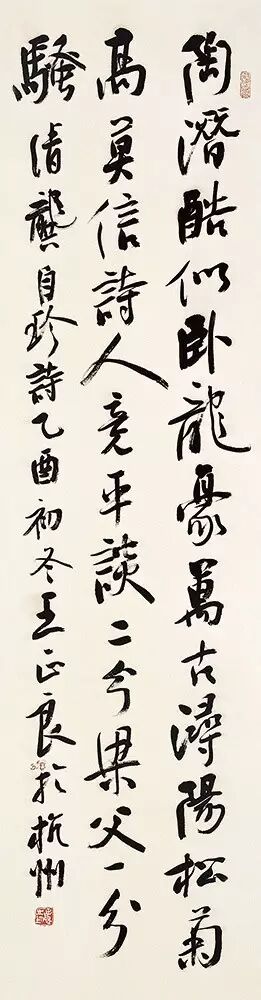 陶潛酷似卧龍豪萬古潯陽松菊
高莫信詩人竟平談二分梁父一分
騷清龔自珍詩乙酉初冬王正良於杭州